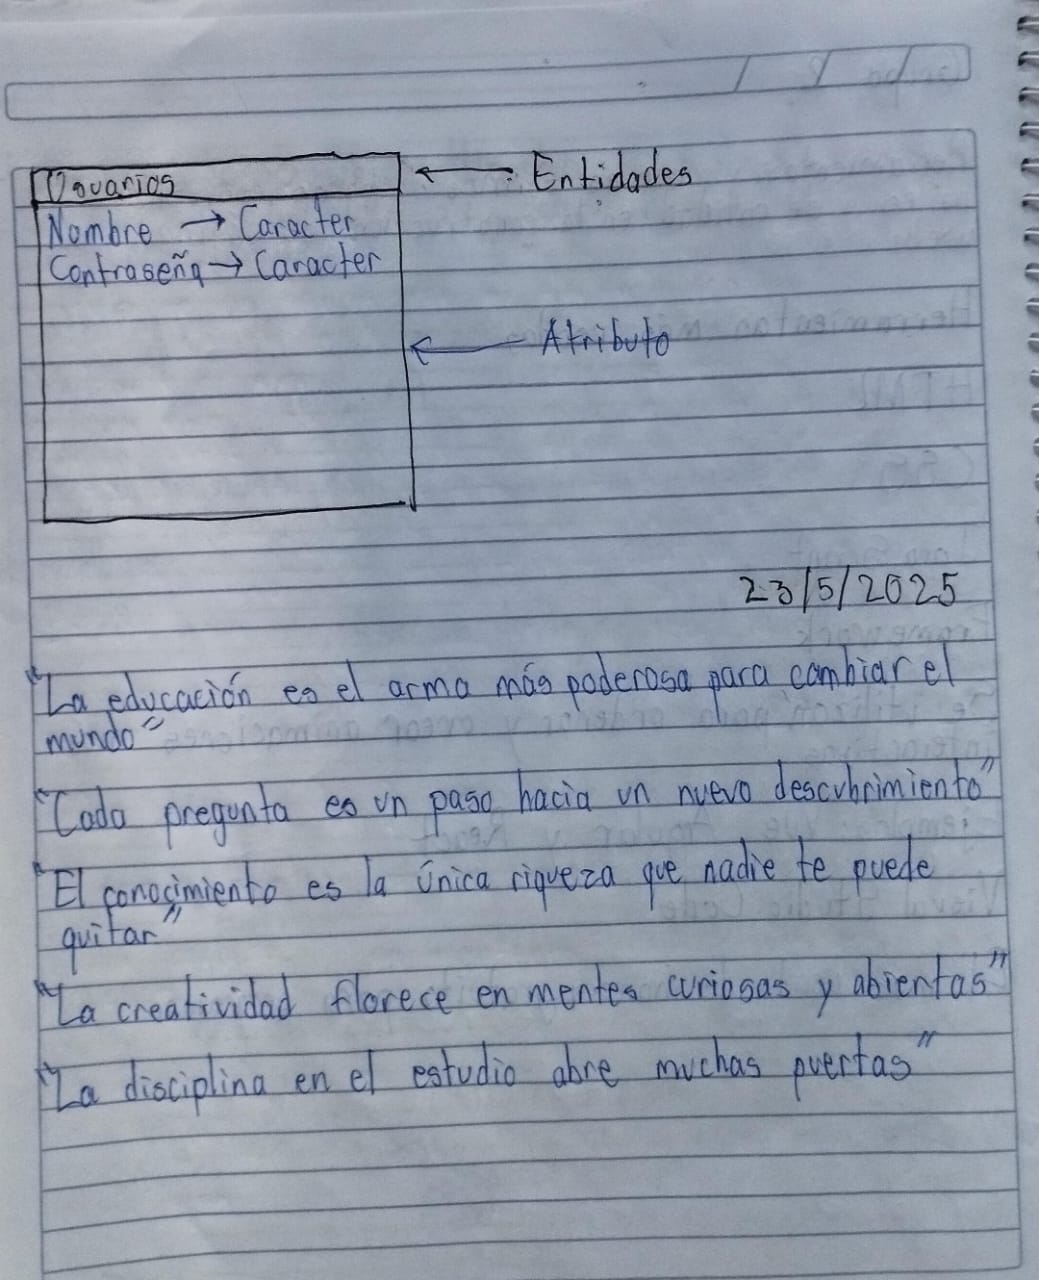 Usuarios ← Entidades
Nombre → Caracter
Contraseña → Caracter
← Atributo
23/5/2025
"La educación es el arma más poderosa para cambiar el
mundo"
"Cada pregunta es un paso hacia un nuevo descubrimiento"
"El conocimiento es la única riqueza que nadie te puede
quitar"
"La creatividad florece en mentes curiosas y abientas"
"La disciplina en el estudio abre muchas puertas"